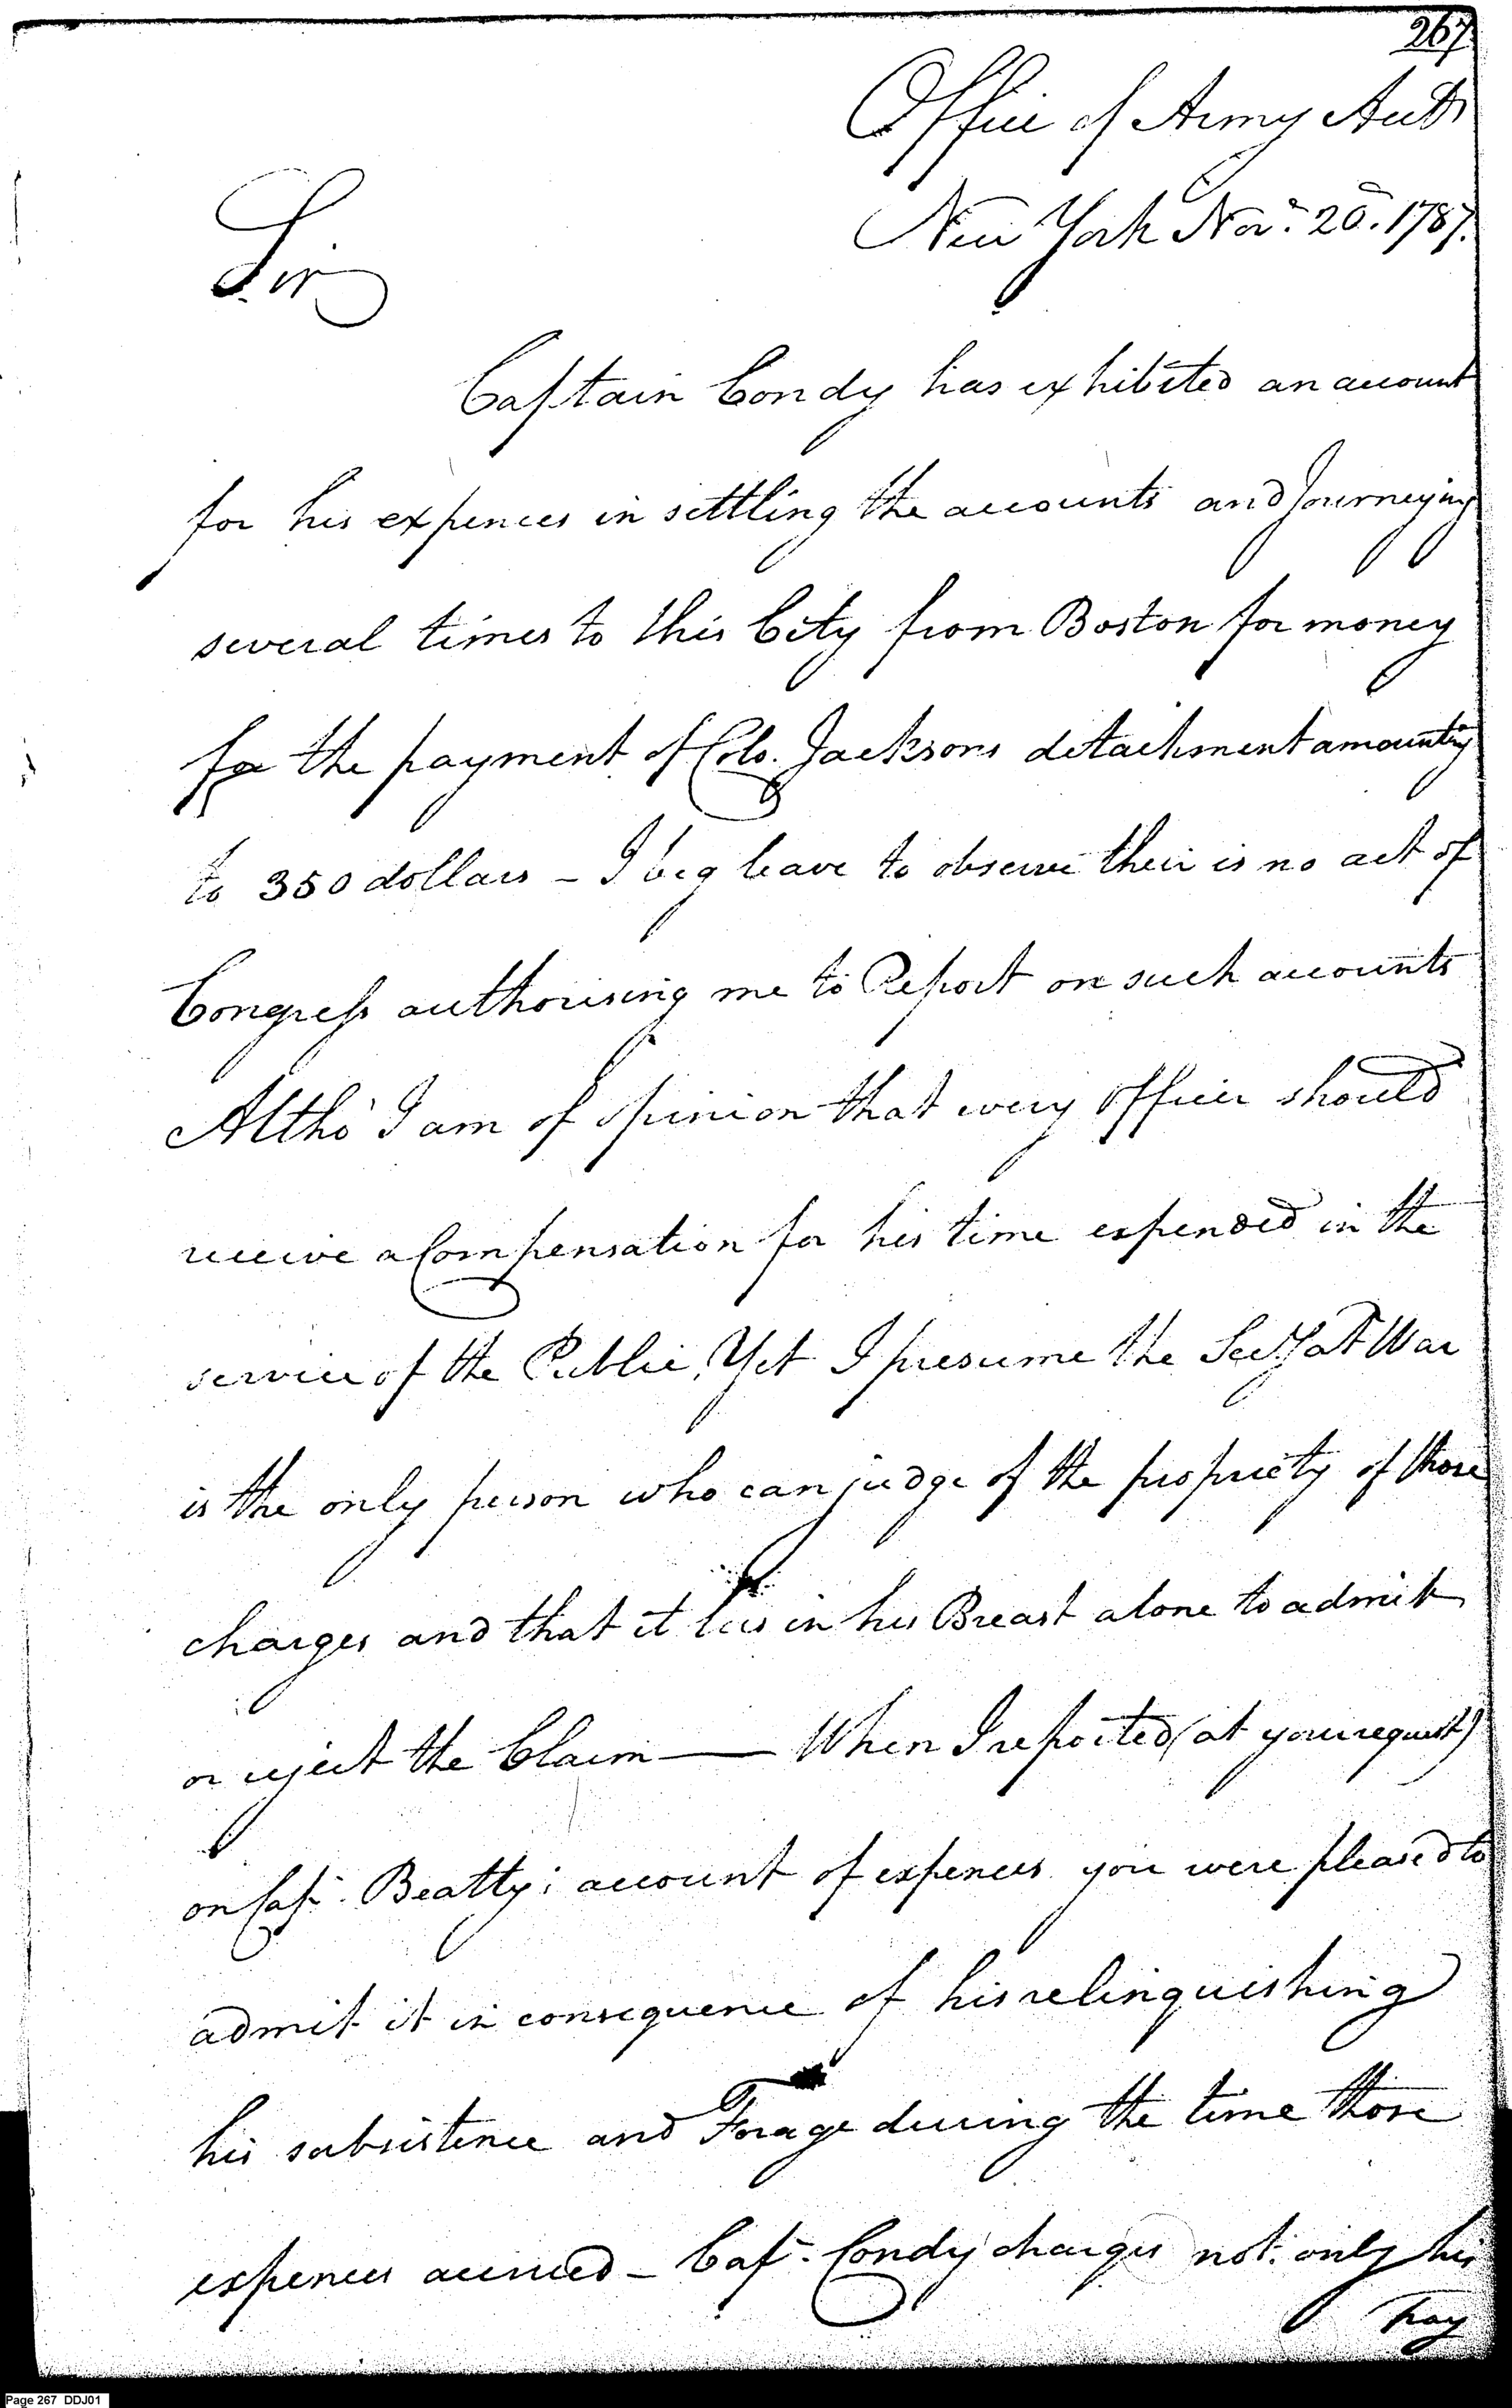 267
Office of Army Accts
New York Nov.r 20. 1787.
Sir
Captain Condy has exhibited an account
for his expences in settling the accounts and Journeying
several times to this City from Boston for money
for the payment of Colo. Jacksons detachment amounting
to 350 dollars - I beg leave to observe their is no act of
Congress authorising me to Report on such accounts
Altho' I am of opinion that every Officer should
receive a Compensation for his time expended in the
service of the Public, Yet I presume the Secy at War
is the only person who can judge of the propriety of those
charges and that it lies in his Breast alone to admit
or reject the Claim — When I reported (at your request)
on Cap.t Beatty's account of expences you were pleased to
admit it in consequence of his relinquishing
his subsistence and Forage during the time those
expences accrued - Cap.t Condy charges not only his
pay
Page 267 DDJ01